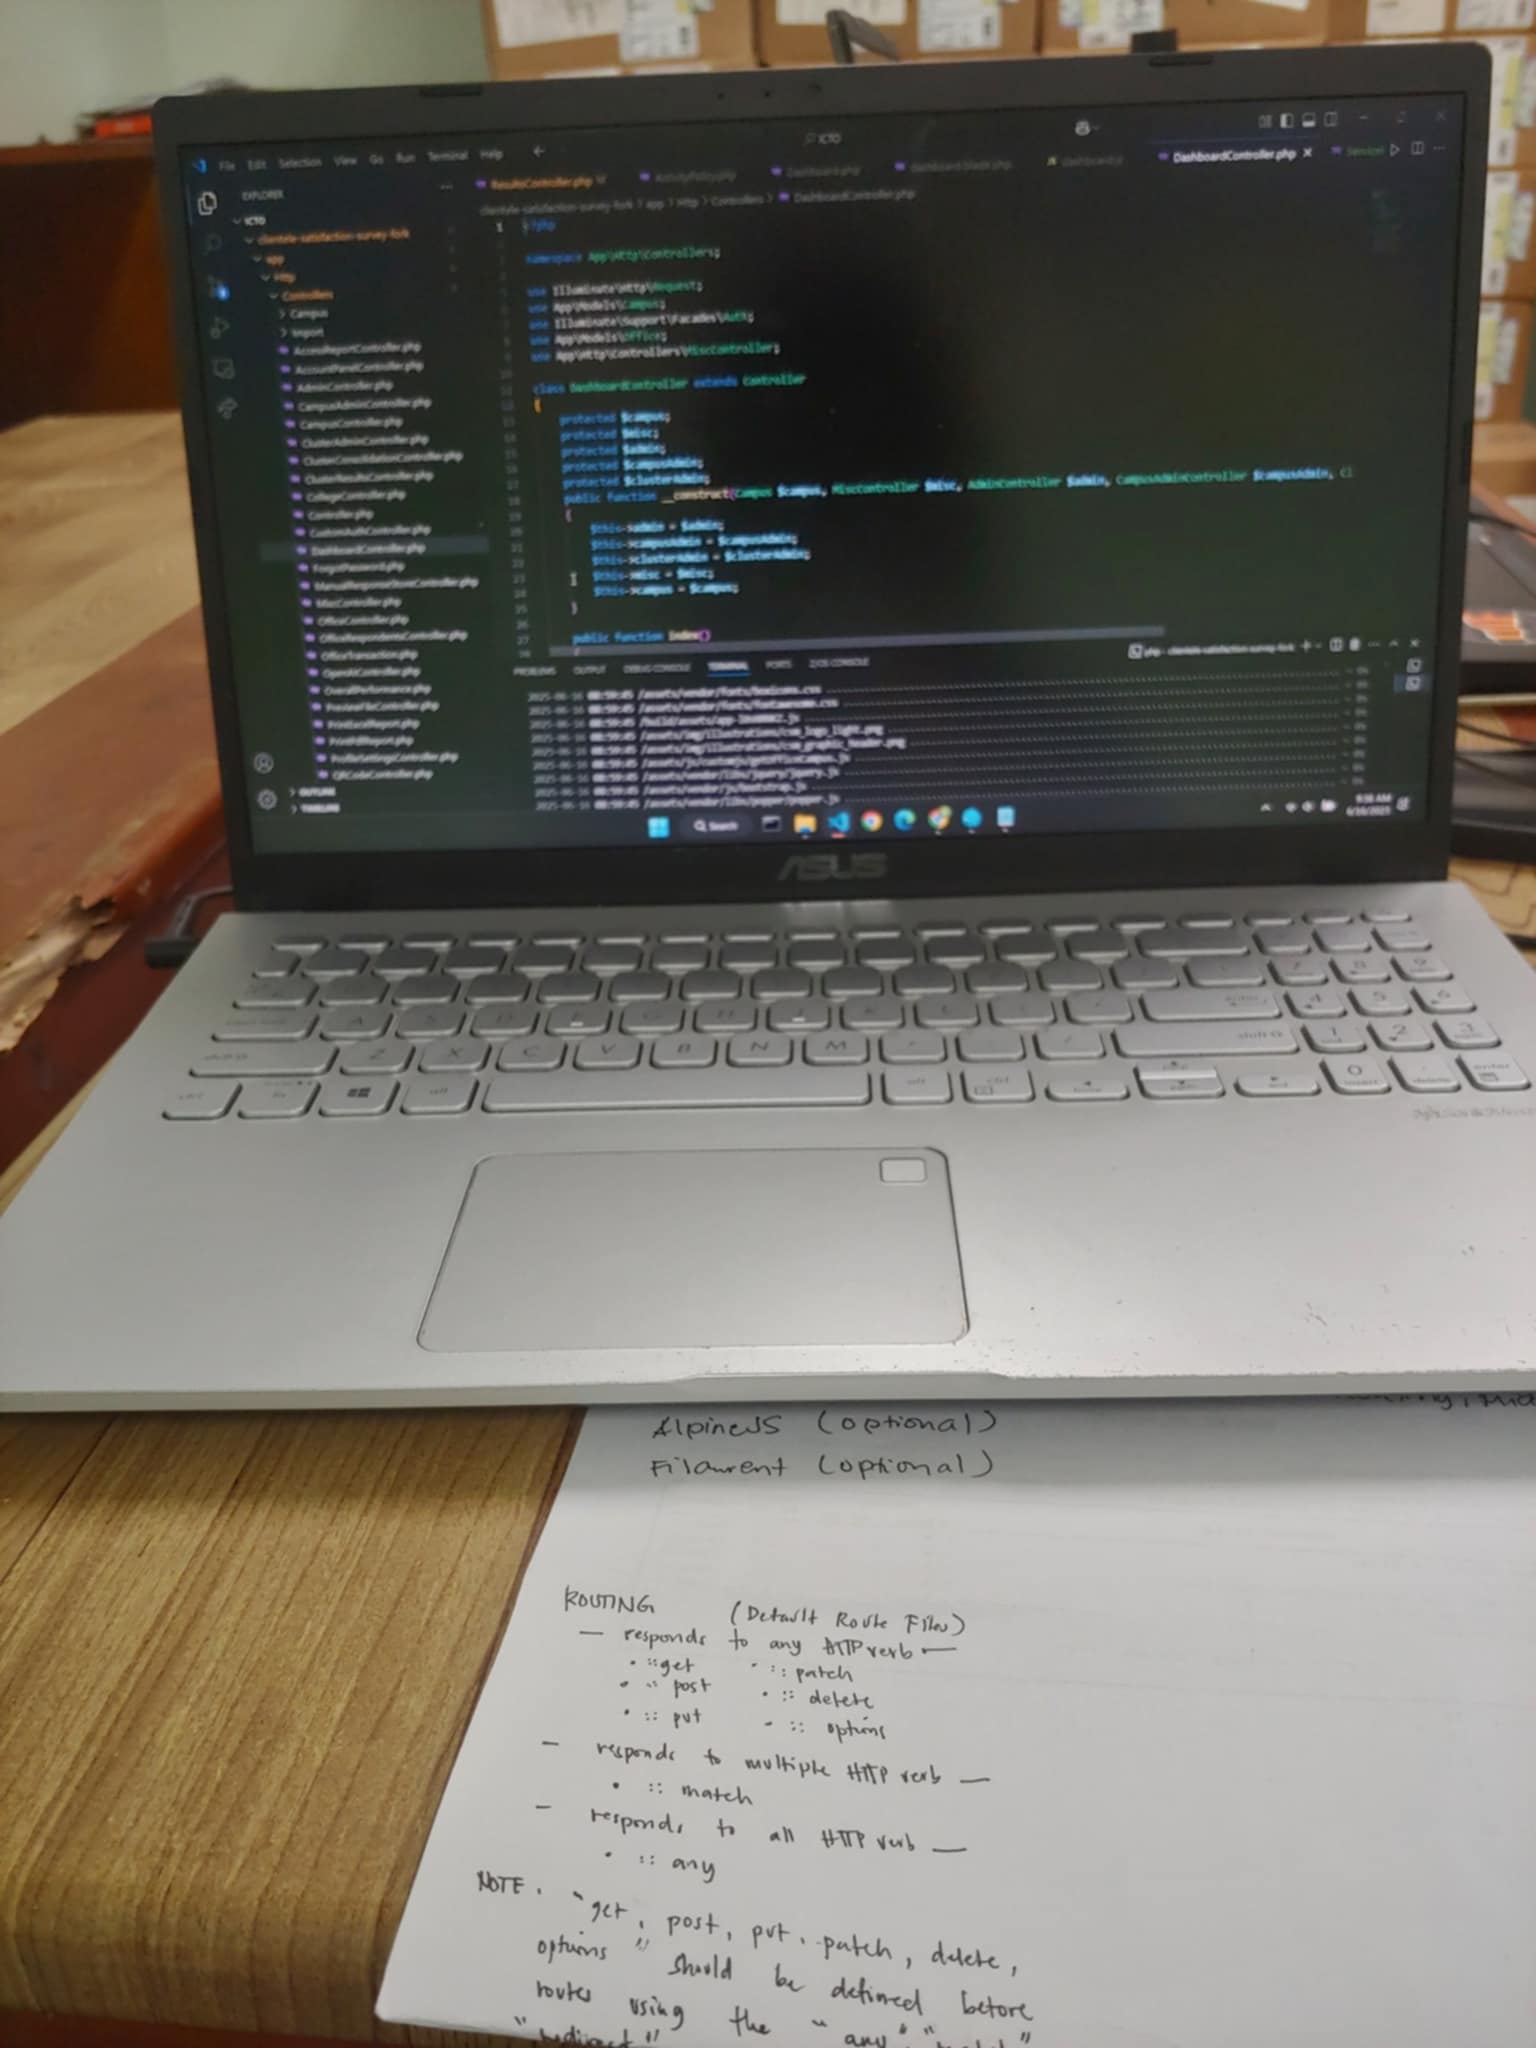 File Edit Selection View Go Run Terminal Help
ICTO
EXPLORER
ICTO
clientele-satisfaction-survey-fork
app
Http
Controllers
Campus
Import
AccessReportController.php
AccountPanelController.php
AdminController.php
CampusAdminController.php
CampusController.php
ClusterAdminController.php
ClusterConsolidationController.php
ClusterResultsController.php
CollegeController.php
Controller.php
CustomAuthController.php
DashboardController.php
ForgotPassword.php
ManualResponseStoreController.php
MiscController.php
OfficeController.php
OfficeRespondentsController.php
OfficeTransaction.php
OpenAIController.php
OverallPerformance.php
PreviewFileController.php
PrintExcelReport.php
ProfileSettingsController.php
QRCodeController.php
OUTLINE
TIMELINE
ResultsController.php
Dashboard.php
dashboard.blade.php
dashboard.js
DashboardController.php
clientele-satisfaction-survey-fork > app > Http > Controllers > DashboardController.php
<?php
namespace App\Http\Controllers;
use Illuminate\Http\Request;
use App\Models\Campus;
use Illuminate\Support\Facades\Auth;
use App\Models\Office;
use App\Http\Controllers\MiscController;
class DashboardController extends Controller
{
protected $campus;
protected $misc;
protected $admin;
protected $campusAdmin;
protected $clusterAdmin;
public function __construct(Campus $campus, MiscController $misc, AdminController $admin, CampusAdminController $campusAdmin, Cl
{
$this->admin = $admin;
$this->campusAdmin = $campusAdmin;
$this->clusterAdmin = $clusterAdmin;
$this->misc = $misc;
$this->campus = $campus;
}
public function index()
PROBLEMS OUTPUT DEBUG CONSOLE TERMINAL PORTS
php - clientele-satisfaction-survey-fork
2025-06-16 08:59:45 /assets/vendor/fonts/boxicons.css
2025-06-16 08:59:45 /assets/vendor/fonts/fontawesome.css
2025-06-16 08:59:45
2025-06-16 08:59:45 /assets/img/illustrations/csm_logo_light.png
2025-06-16 08:59:45 /assets/img/illustrations/csm_graphic_header.png
2025-06-16 08:59:45 /assets/js/customjs/getOfficeCampus.js
2025-06-16 08:59:45 /assets/vendor/libs/jquery/jquery.js
2025-06-16 08:59:45 /assets/vendor/js/bootstrap.js
2025-06-16 08:59:45 /assets/vendor/libs/popper/popper.js
Search
ASUS
AlpineJS (optional)
Filament (optional)
ROUTING (Default Route Files)
— responds to any HTTP verb —
• ::get • ::patch
• :: post • :: delete
• :: put - :: options
— responds to multiple HTTP verb —
• :: match
— responds to all HTTP verb —
• :: any
NOTE. "get, post, put, patch, delete,
options" should be defined before
routes using the "any"
"redirect"